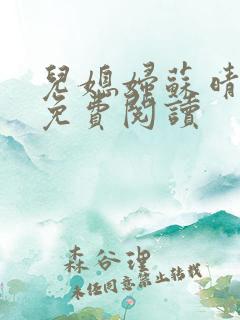 兒媳婦蘇晴
免費閱讀
森谷理
未經同意禁止轉載